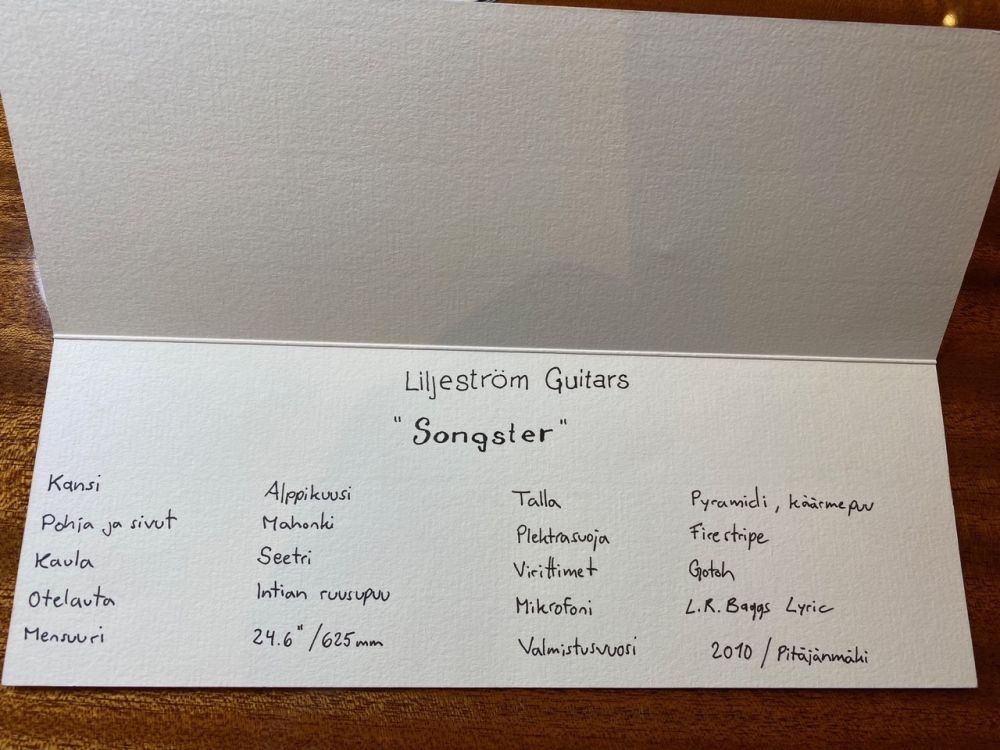 Liljeström Guitars
"Songster"
Kansi Alppikuusi
Pohja ja sivut Mahonki
Kaula Seetri
Otelauta Intian ruusupuu
Mensuuri 24.6" / 625mm
Talla Pyramidi, käärmepuu
Plektrasuoja Firestripe
Virittimet Gotoh
Mikrofoni L.R. Baggs Lyric
Valmistusvuosi 2010 / Pitäjänmäki